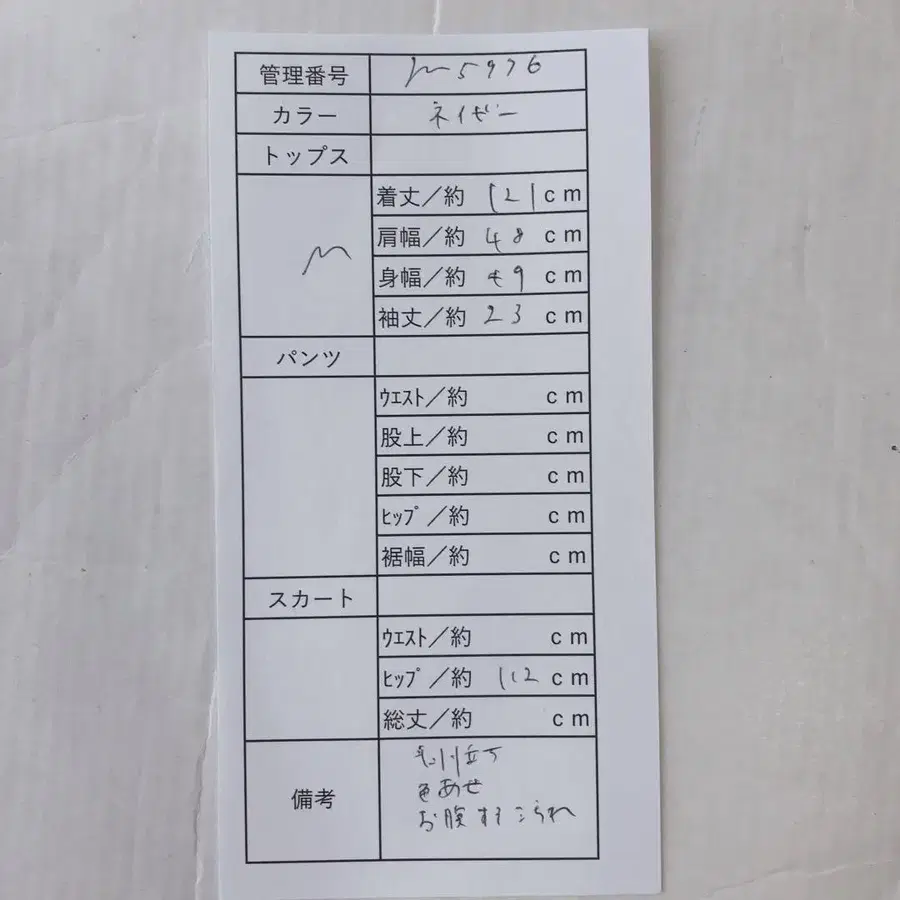 管理番号 m5976
カラー ネイビー
トップス
M
着丈／約 121cm
肩幅／約 48 cm
身幅／約 49 cm
袖丈／約 23 cm
パンツ
ｳｴｽﾄ／約 cm
股上／約 cm
股下／約 cm
ﾋｯﾌﾟ／約 cm
裾幅／約 cm
スカート
ｳｴｽﾄ／約 cm
ﾋｯﾌﾟ／約 112 cm
総丈／約 cm
備考
色あせ
お腹